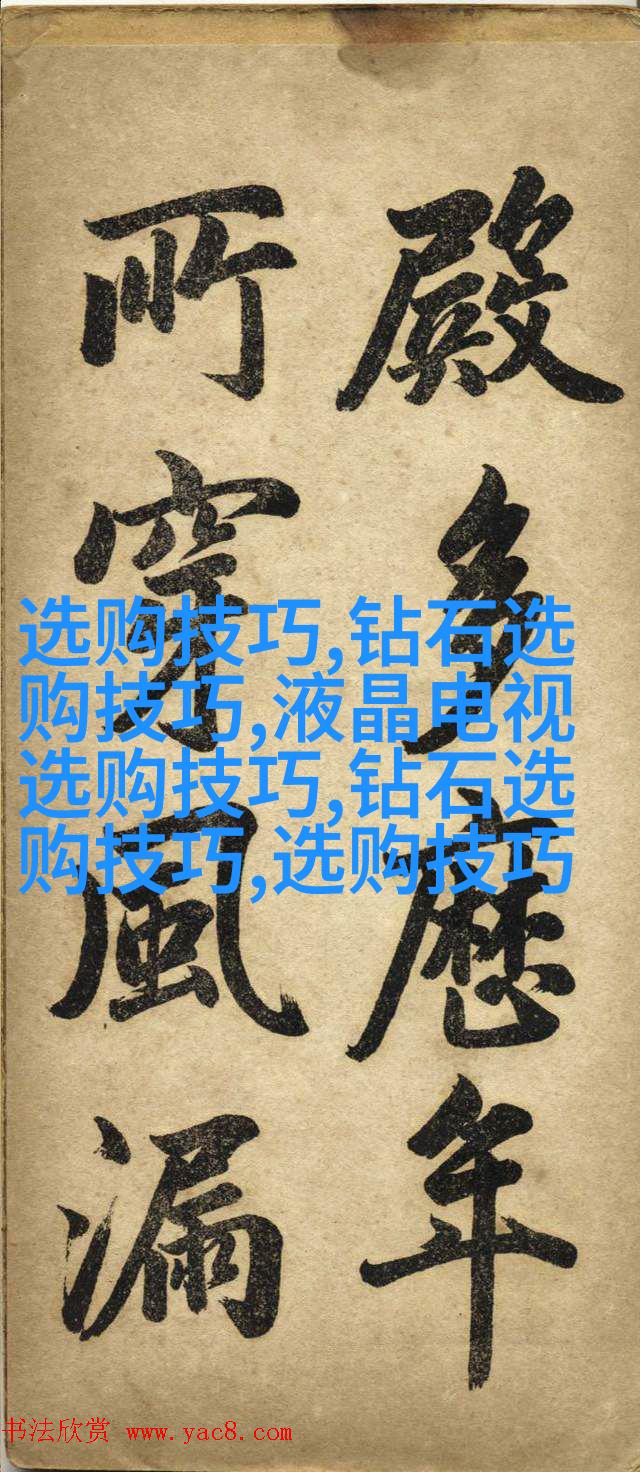 殿多歷年
所穿風漏
选购技巧,钻石选
购技巧,液晶电视
选购技巧,钻石选
购技巧,选购技巧
书法欣赏 www.yac8.com